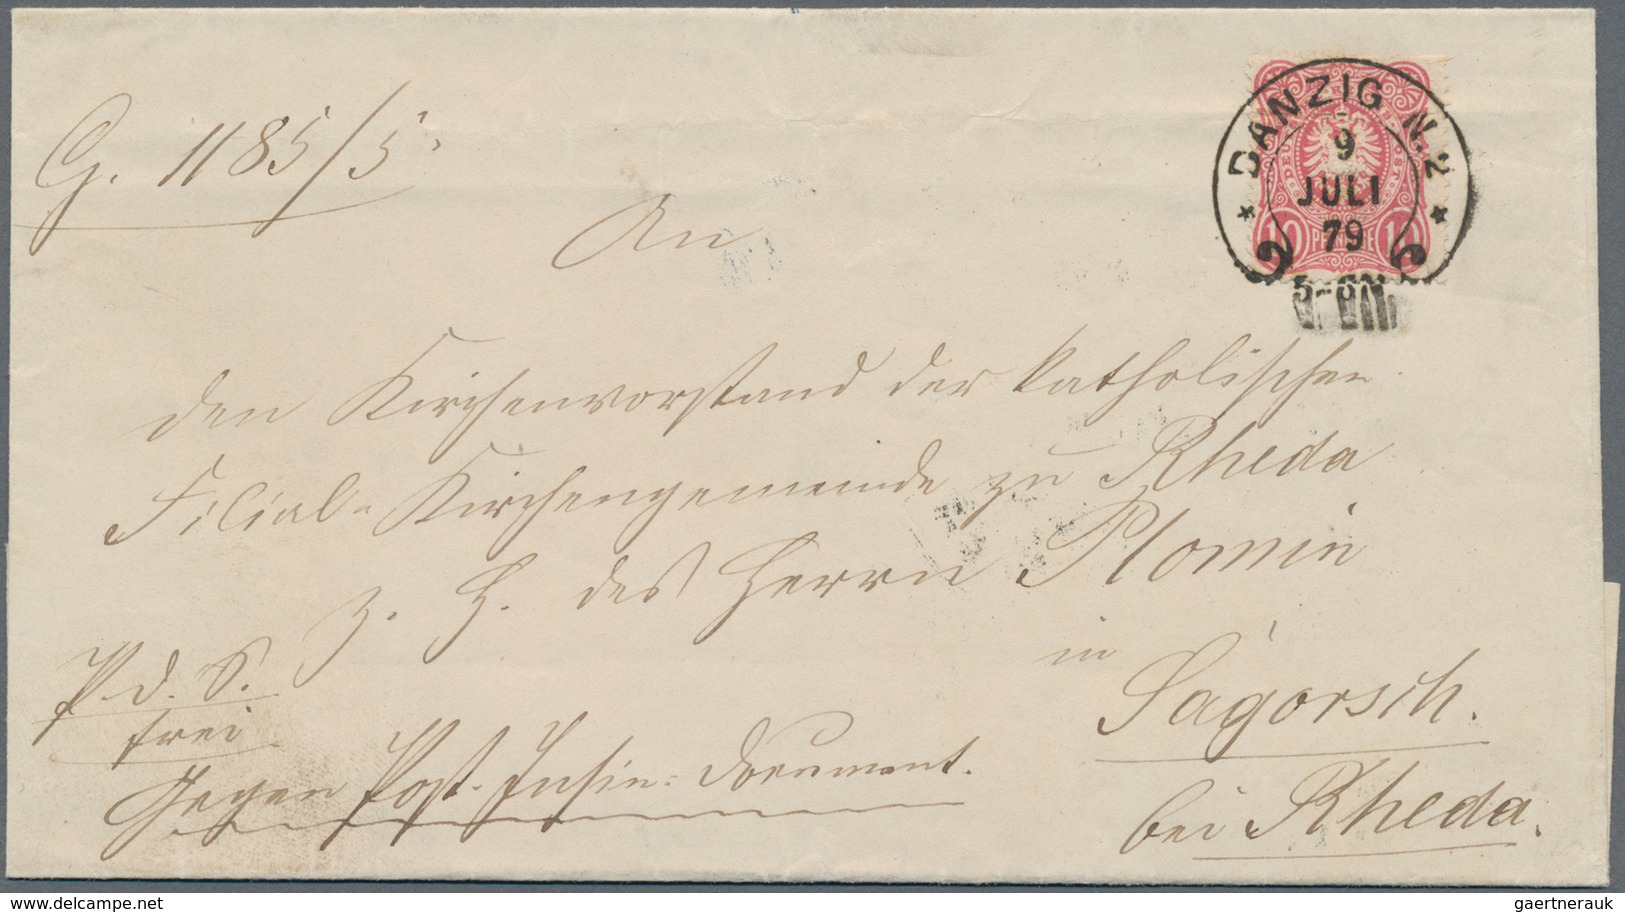 G. 1185/5.
DANZIG N. 2
9
JULI
79
10 PFENNIG 10
An
den Kirchenvorstand der katholischen
Filial-Kirchengemeinde zu Rheda
z. H. des Herrn Plomin
in
Sagorsch.
bei Rheda.
P. d. S.
frei
Gegen Post-Insin: Document.
delcampe.net
gaertnerauk